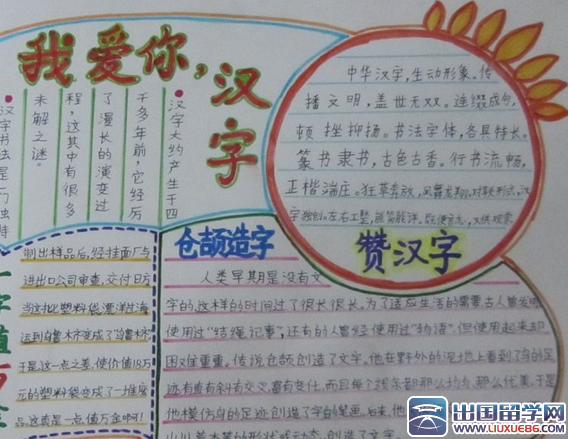 我爱你，汉字
汉字大约产生于四
千多年前，它经历
了漫长的演变过
程，这其中有很多
未解之谜。
汉字书法是一门独特
中华汉字，生动形象。传
播文明，盖世无双。连缀成句，
顿挫抑扬。书法字体，各具特长。
篆书隶书，古色古香。行书流畅，
正楷端庄。狂草奔放，
赞汉字
仓颉造字
人类早期是没有文
字的，这样的时间过了很长很长。为了适应生活的需要古人曾发明
使用过"结绳记事"，还有的人曾经使用过"物语"。但使用起来却
困难重重。传说仓颉创造了文字。他在野外的泥地上看到了鸟的足
迹有直有斜有交叉，富有变任，而且每个线条都那么均匀，那么优美，于是
他模仿鸟的足迹创造了字的笔画。后来，他
字值万金
制出样品后，经挂面厂与
进出口公司审查，交付日方。
当这批塑料袋漂洋过海
运到乌鲁木齐变成了"乌鲁木齐
于是这一点之差，使价值18万
元的塑料袋变成了一堆废
品。这真是一点值万金啊！
出国留学网
WWW.LIUXUE86.COM